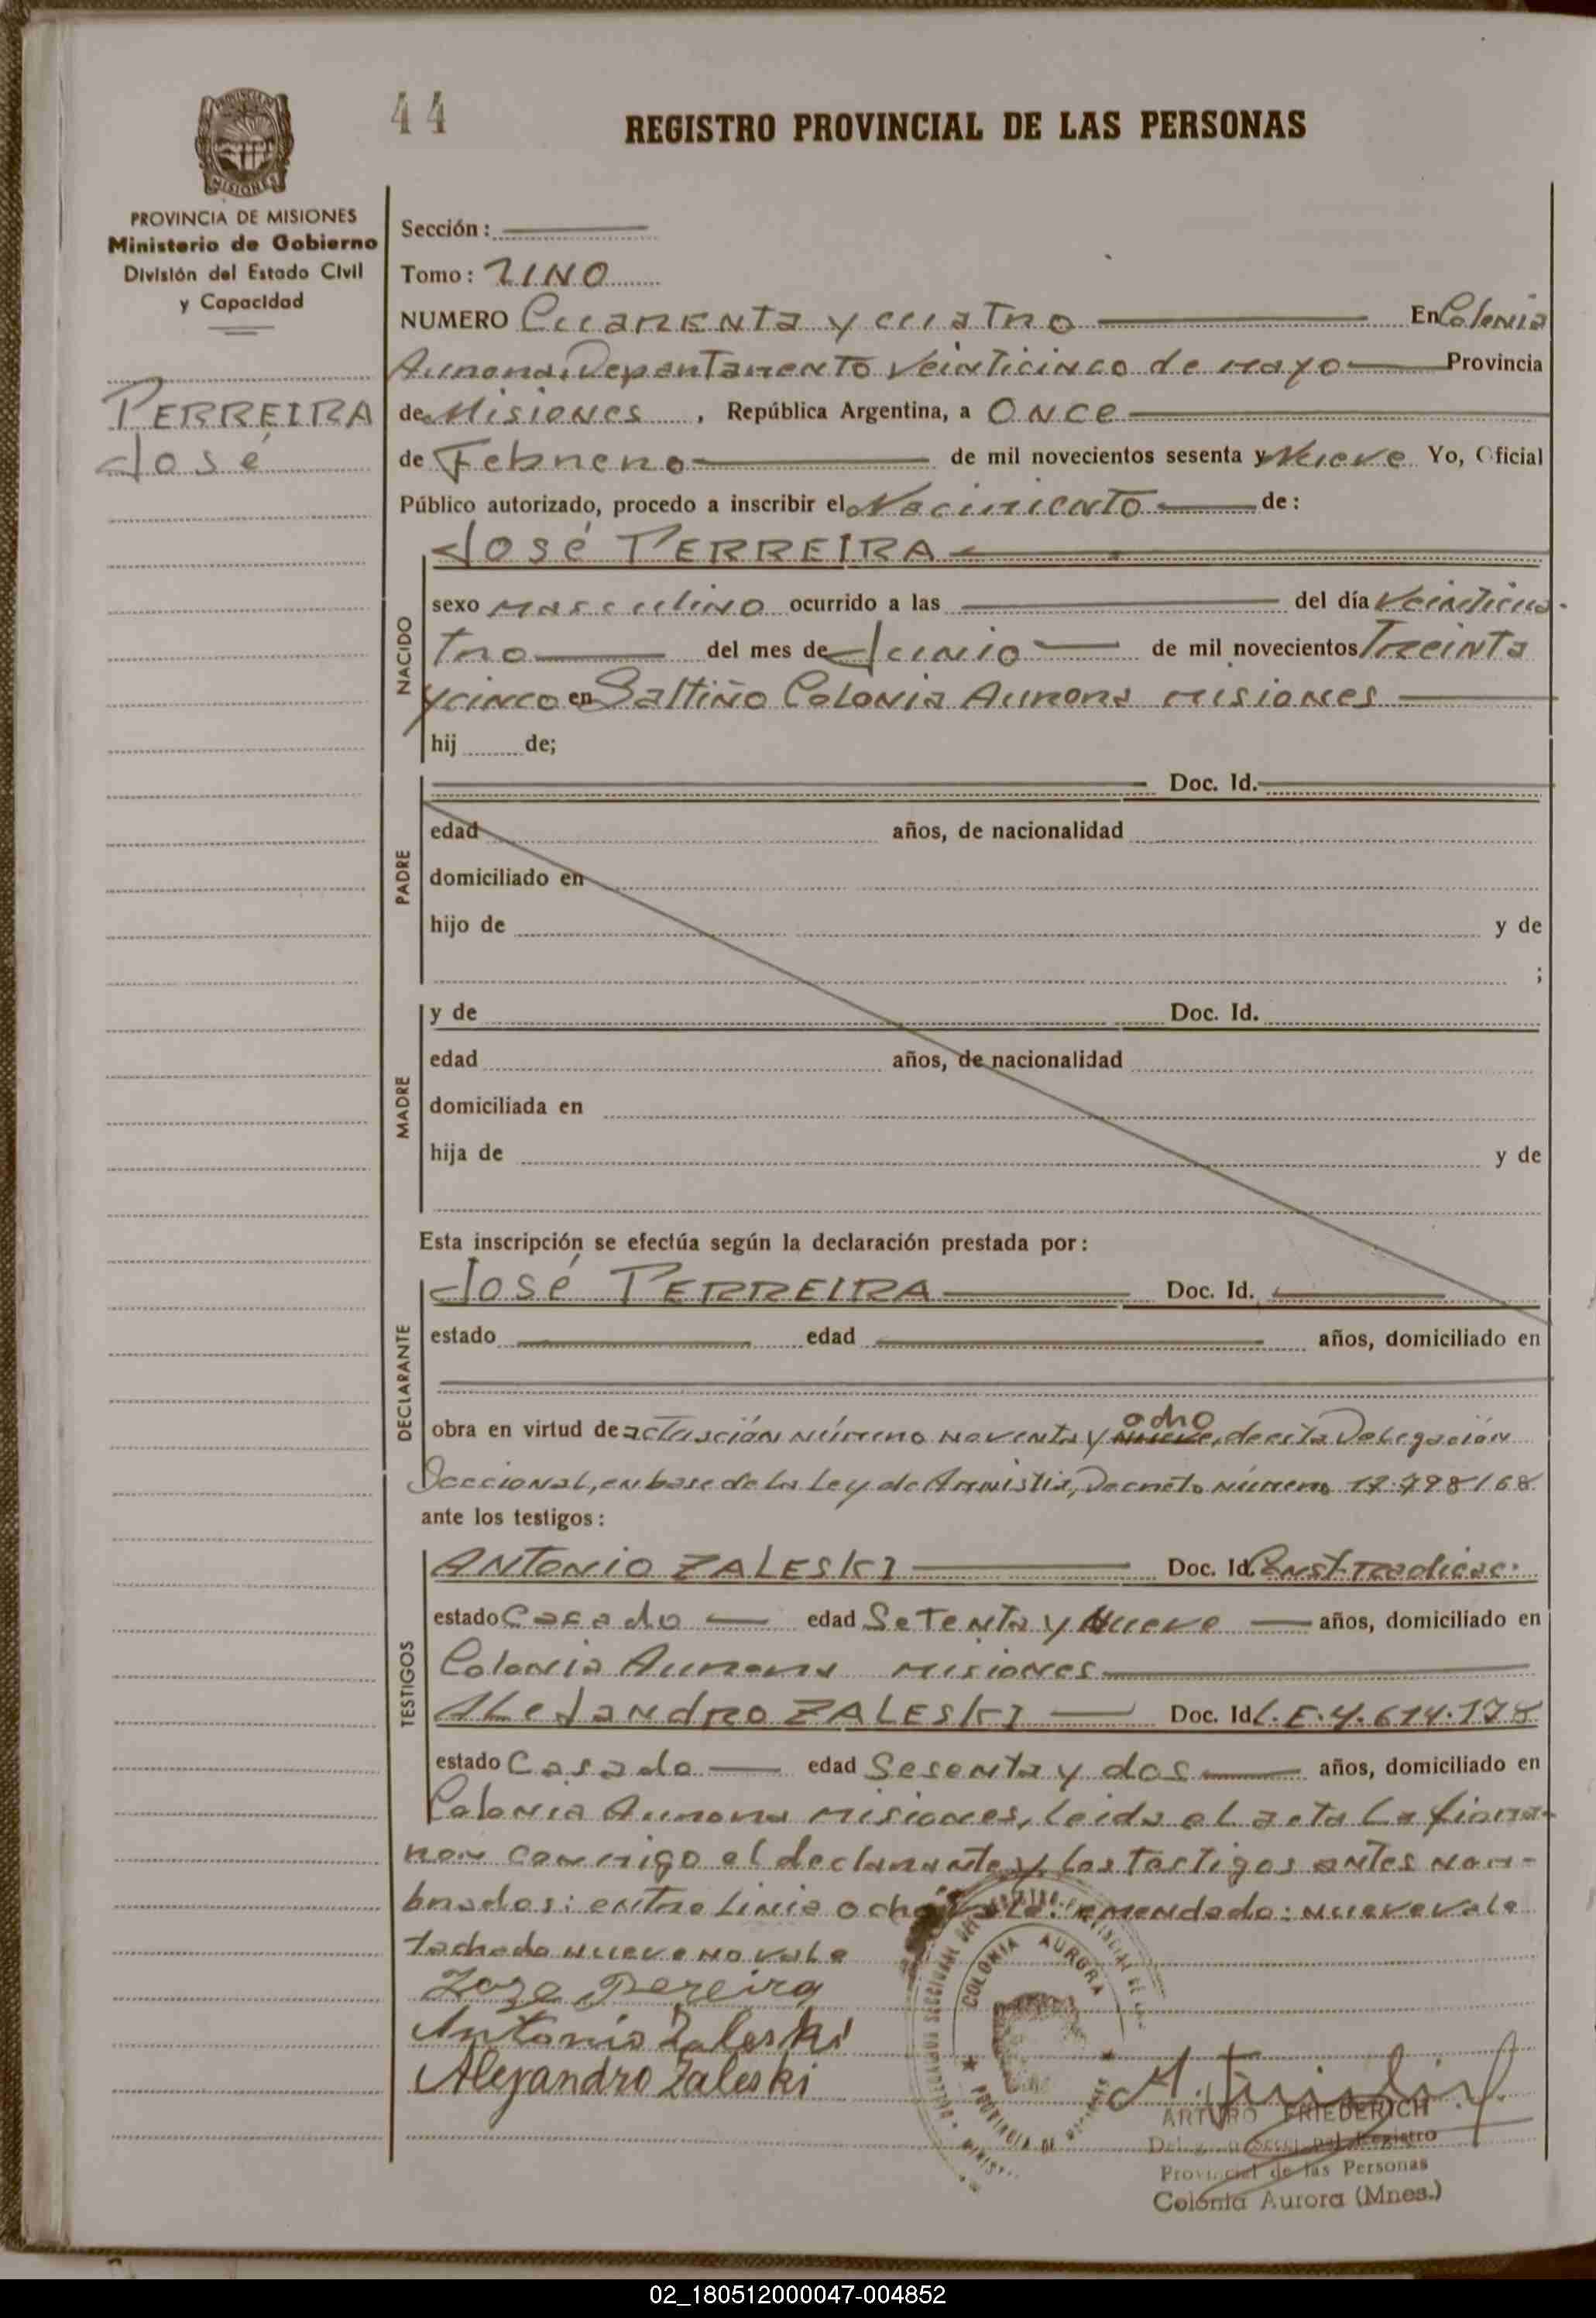 44
REGISTRO PROVINCIAL DE LAS PERSONAS
PROVINCIA DE MISIONES
Ministerio de Gobierno
División del Estado Civil
y Capacidad
PERREIRA
José
Sección:
Tomo: UNO
NUMERO Cuarenta y cuatro En Colonia
Aurora, Departamento Veinticinco de mayo Provincia
de Misiones, República Argentina, a Once
de Febrero de mil novecientos sesenta y Nueve Yo, Oficial
Público autorizado, procedo a inscribir el Nacimiento de:
NACIDO
José PERREIRA
sexo masculino ocurrido a las del día Veinticua-
tro del mes de Junio de mil novecientos Treinta
y cinco en Saltiño Colonia Aurora misiones
hij de;
PADRE
Doc. Id.
edad años, de nacionalidad
domiciliado en
hijo de y de
;
MADRE
y de Doc. Id.
edad años, de nacionalidad
domiciliada en
hija de y de
Esta inscripción se efectúa según la declaración prestada por:
DECLARANTE
José PERREIRA Doc. Id.
estado edad años, domiciliado en
ocho
obra en virtud de actuación número noventa y nueve, de esta Delegación
Seccional, en base de la Ley de Amnistia, Decreto número 17.798/68
ante los testigos:
TESTIGOS
ANTONIO ZALESKI Doc. Id.
estado Casado edad Setenta y Nueve años, domiciliado en
Colonia Aurora misiones
ALeJandro ZALESKI Doc. Id L.E.4.614.178
estado Casado edad Sesenta y dos años, domiciliado en
Colonia Aurora misiones, leida el acta la firma-
ron conmigo el declarante y los testigos antes nom-
brados: entre linia ocho vale: emendado: nueve vale
tachado nueve no vale
Joze Pereira
Antonio Zaleski
Alejandro Zaleski
COLONIA AURORA
PROVINCIA DE MISIONES
ARTURO FRIEDERICH
Provincial de las Personas
Colonia Aurora (Mnes.)
02_180512000047-004852